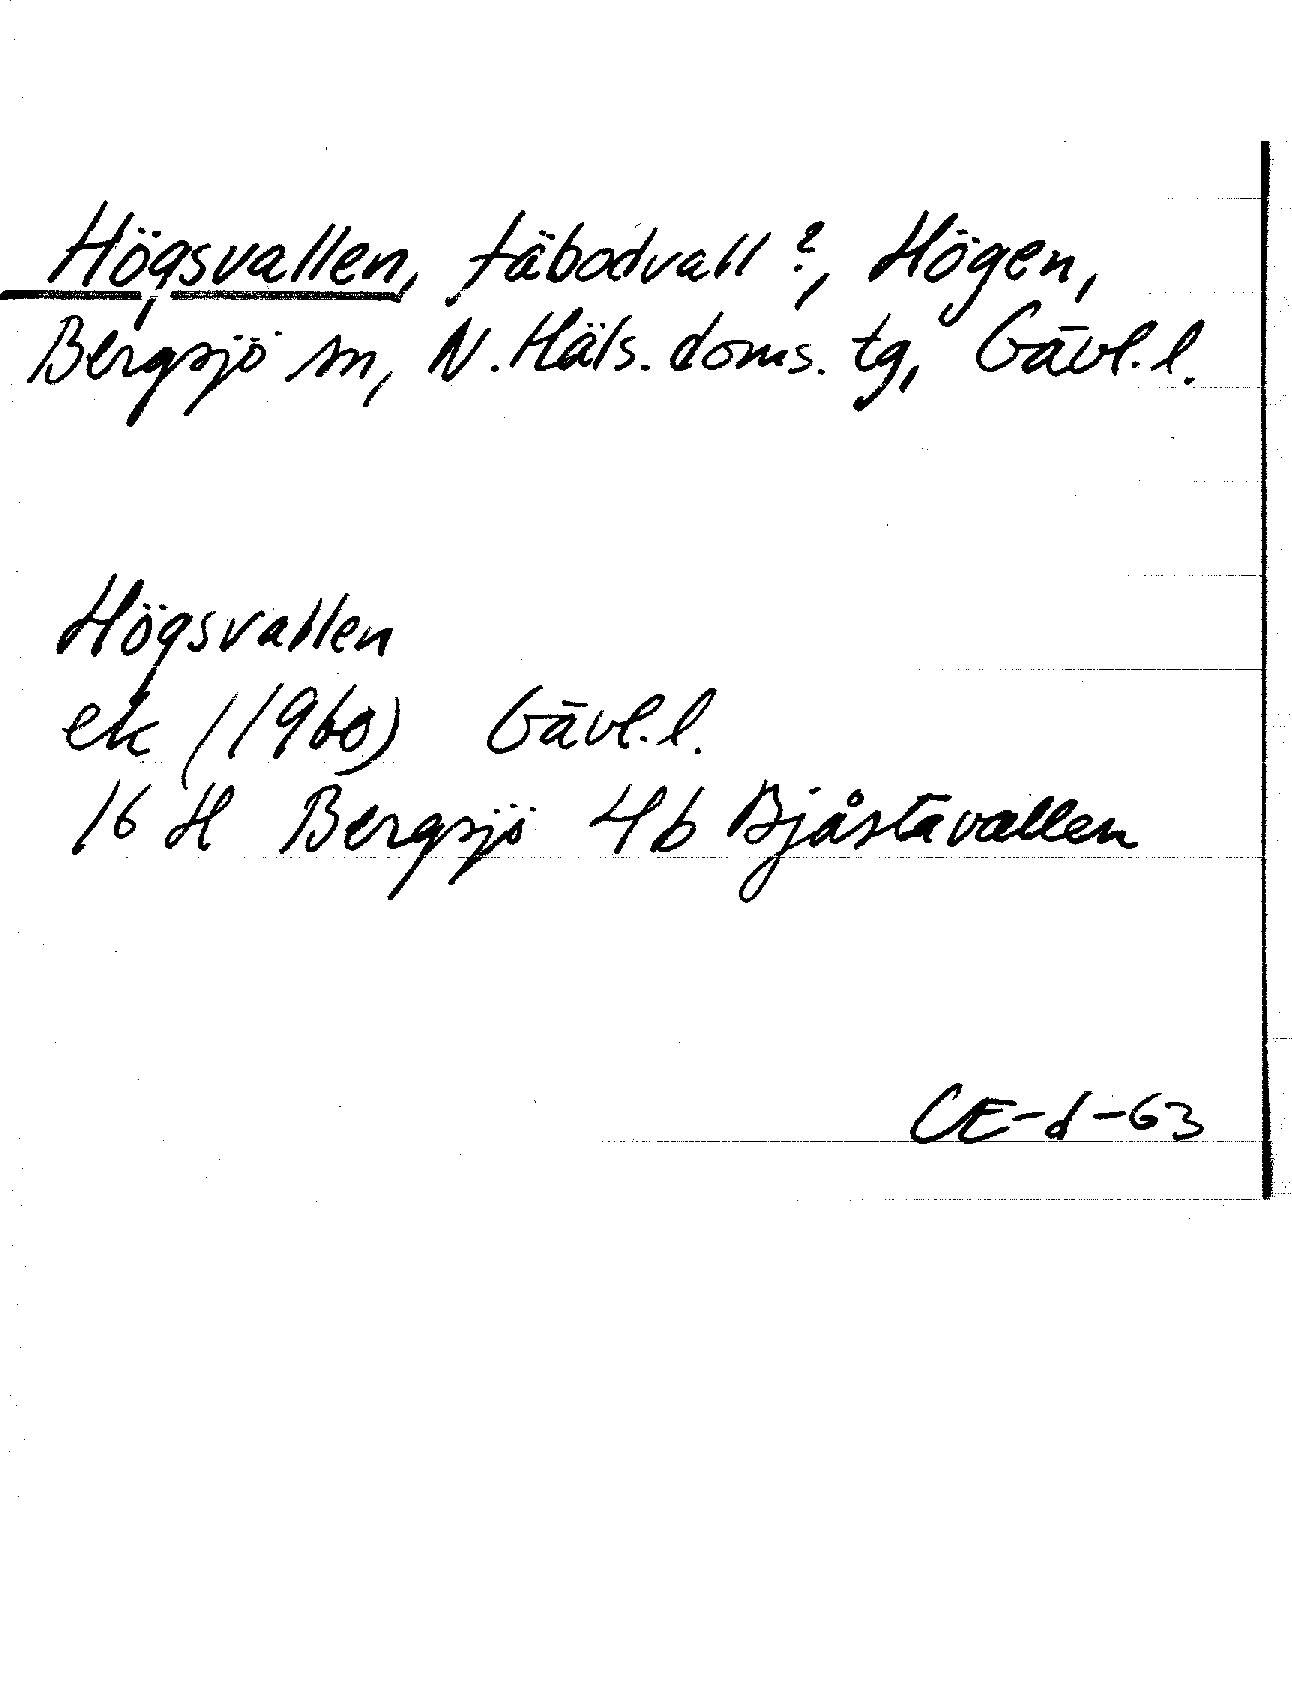 Högsvallen, fäbodvall?, Högen,
Bergsjö sn, N. Häls. doms. tg, Gävl. l.
Högsvallen
ek (1960) Gävl. l.
16 H Bergsjö 4b Bjåstavallen
CE-d-63